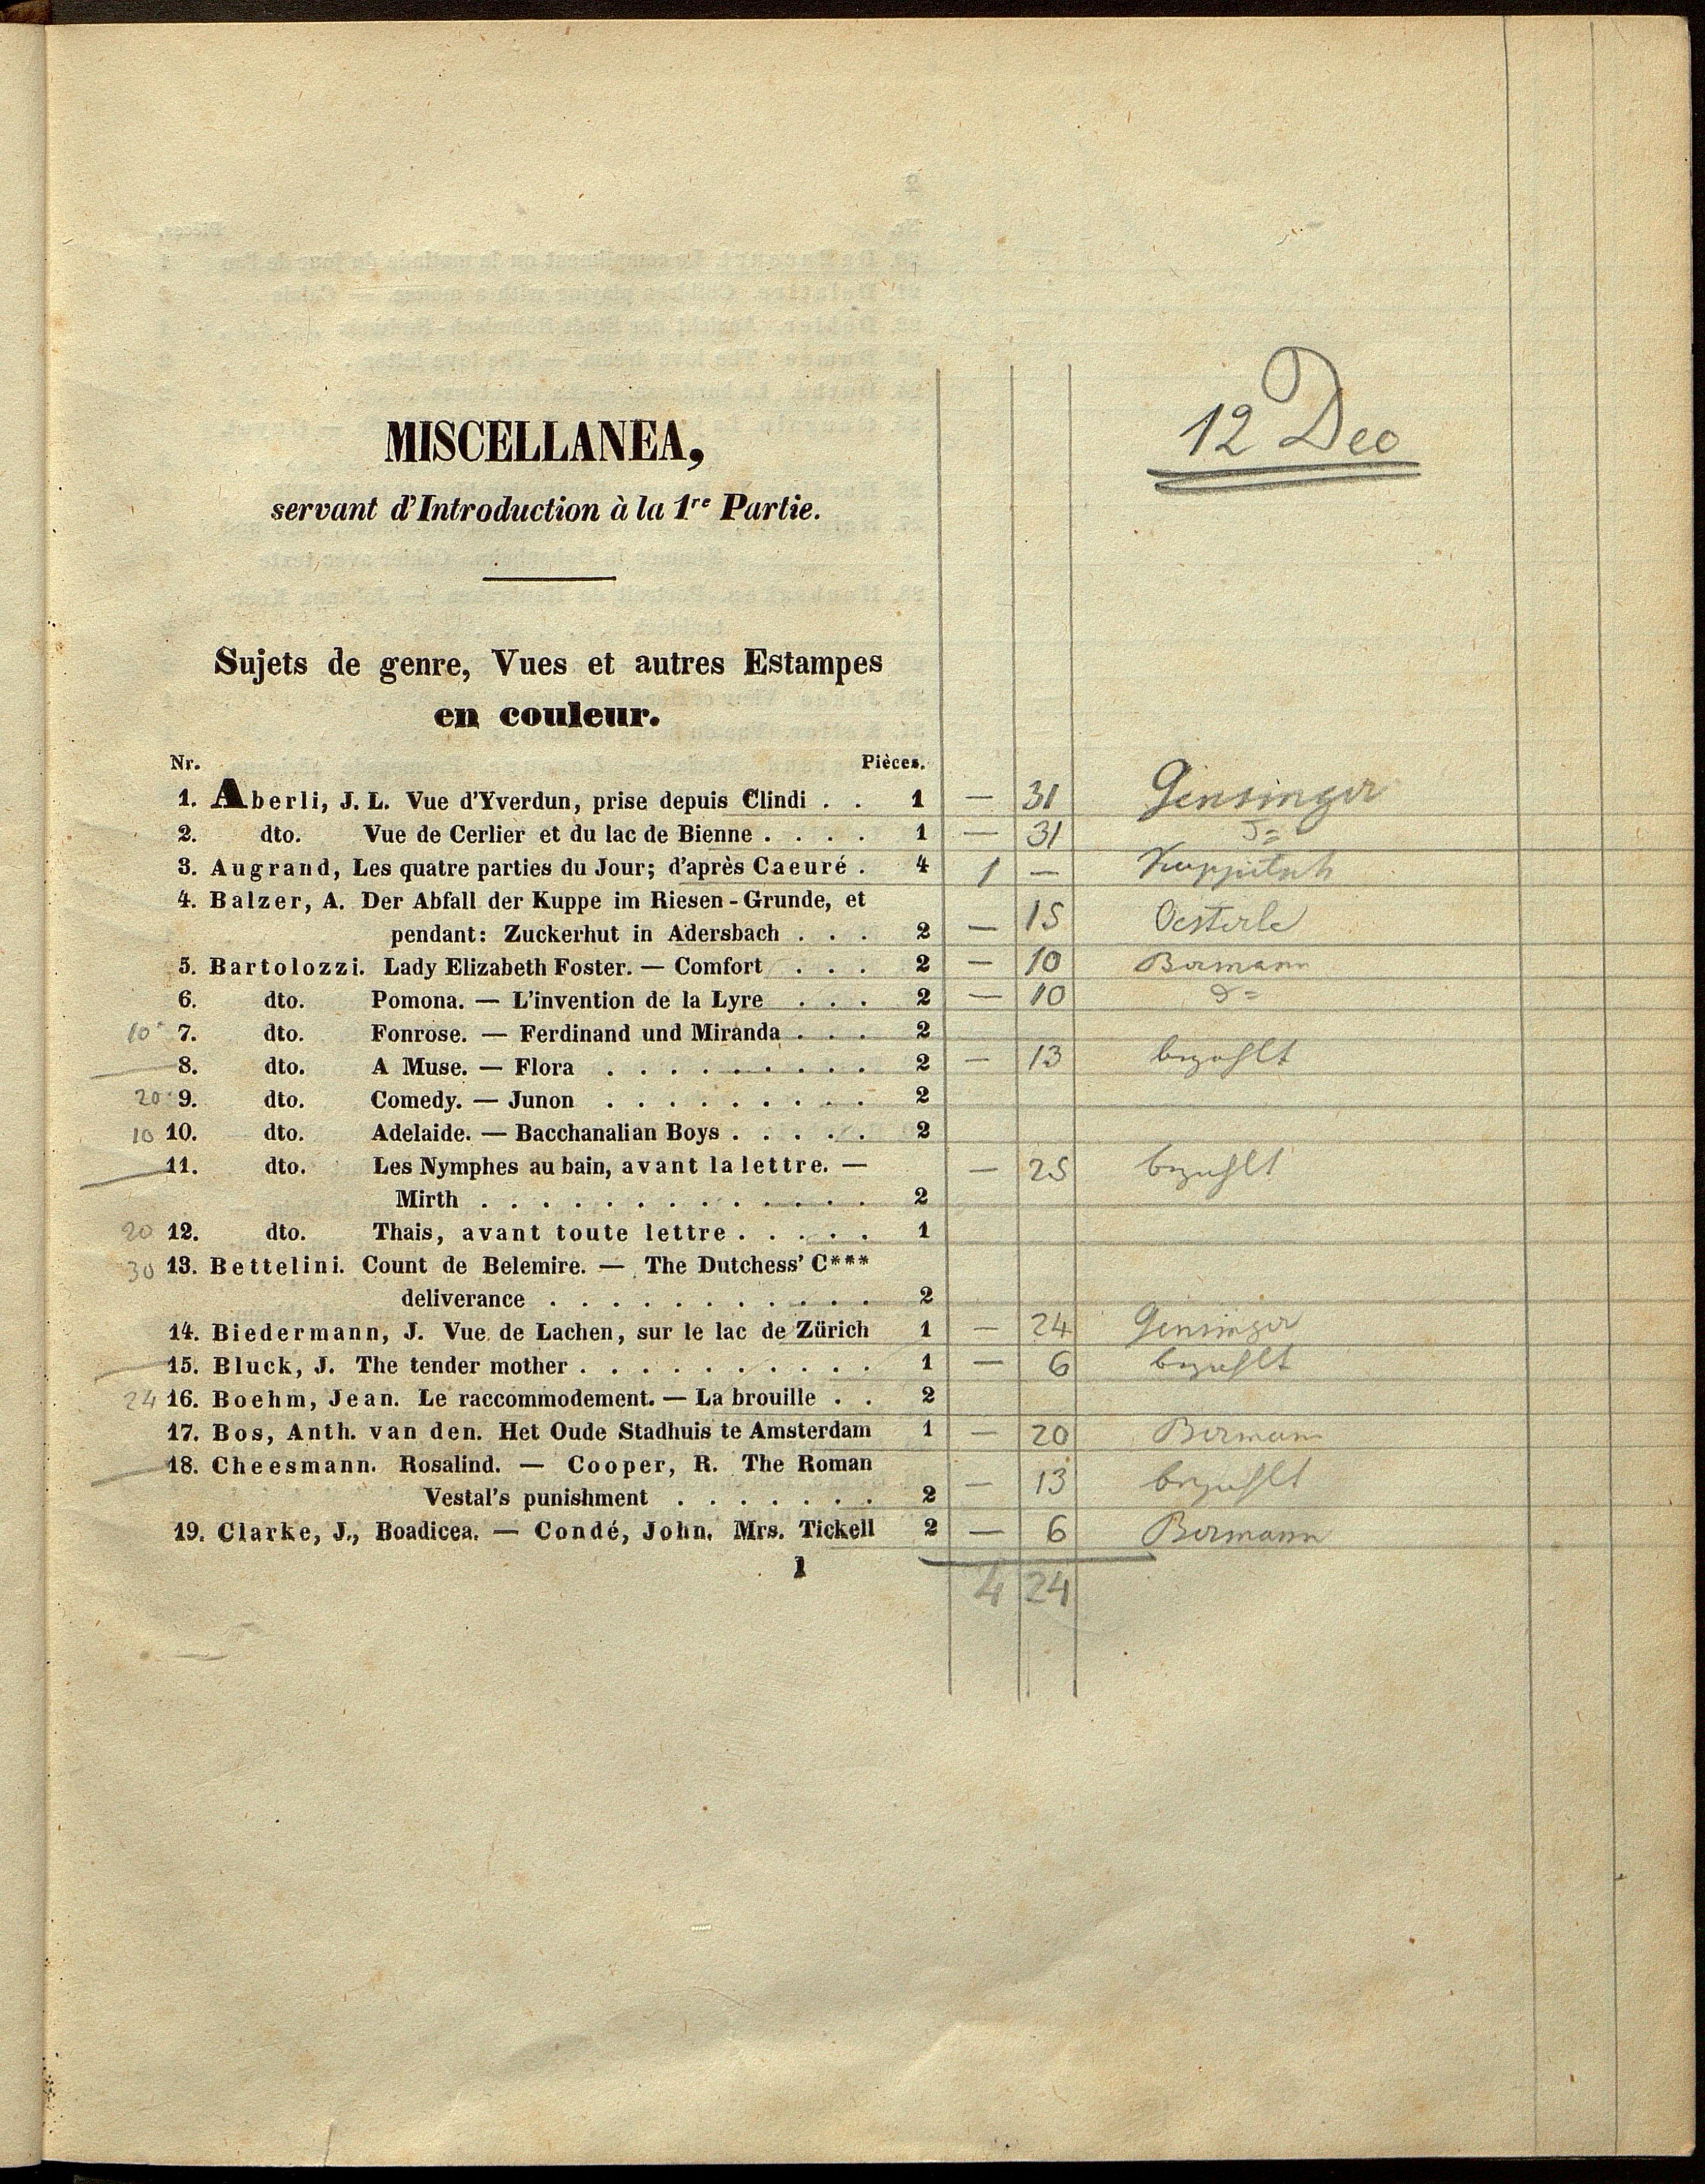 12 Dec
MISCELLANEA,
servant d'Introduction à la 1re Partie.
Sujets de genre, Vues et autres Estampes
en couleur.
Nr. Pièces.
1. Aberli, J. L. Vue d'Yverdun, prise depuis Clindi . . 1 — 31 Gensinger
2. dto. Vue de Cerlier et du lac de Bienne . . . . 1 — 31
3. Augrand, Les quatre parties du Jour; d'après Caeuré . 4 1 — Kuppitsch
4. Balzer, A. Der Abfall der Kuppe im Riesen-Grunde, et
pendant: Zuckerhut in Adersbach . . . 2 — 15 Oesterle
5. Bartolozzi. Lady Elizabeth Foster. — Comfort . . . 2 — 10 Bermann
6. dto. Pomona. — L'invention de la Lyre . . . 2 — 10
10 7. dto. Fonrose. — Ferdinand und Miranda . . . 2
8. dto. A Muse. — Flora . . . . . . . . . 2 — 13 bezahlt
20 9. dto. Comedy. — Junon . . . . . . . . . 2
10 10. dto. Adelaide. — Bacchanalian Boys . . . . . 2
11. dto. Les Nymphes au bain, avant la lettre. — — 25 bezahlt
Mirth . . . . . . . . . . . . . 2
20 12. dto. Thais, avant toute lettre . . . . . 1
30 13. Bettelini. Count de Belemire. — The Dutchess' C***
deliverance . . . . . . . . . . . 2
14. Biedermann, J. Vue de Lachen, sur le lac de Zürich 1 — 24 Gensinger
15. Bluck, J. The tender mother . . . . . . . . . . 1 — 6 bezahlt
24 16. Boehm, Jean. Le raccommodement. — La brouille . . 2
17. Bos, Anth. van den. Het Oude Stadhuis te Amsterdam 1 — 20 Bermann
18. Cheesmann. Rosalind. — Cooper, R. The Roman
Vestal's punishment . . . . . . . 2 — 13 bezahlt
19. Clarke, J., Boadicea. — Condé, John. Mrs. Tickell 2 — 6 Bermann
1
4 24